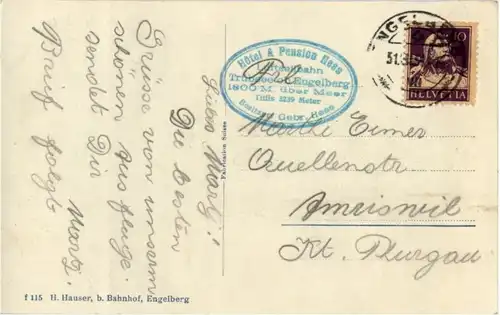 Liebes Marty!
Die besten
Grüsse von unserm
schönen Ausfluge.
sendet Dir
Marty.
Brief folgt
Hôtel & Pension Hess
Trübsee ob Engelberg
1800 M. über Meer
Titlis 3239 Meter
Besitzer Gebr. Hess
ENGELBERG
10
HELVETIA
Frl.
Marthe Eimer
Quellenstr.
Amriswil
Kt. Thurgau
f 115 H. Hauser, b. Bahnhof, Engelberg